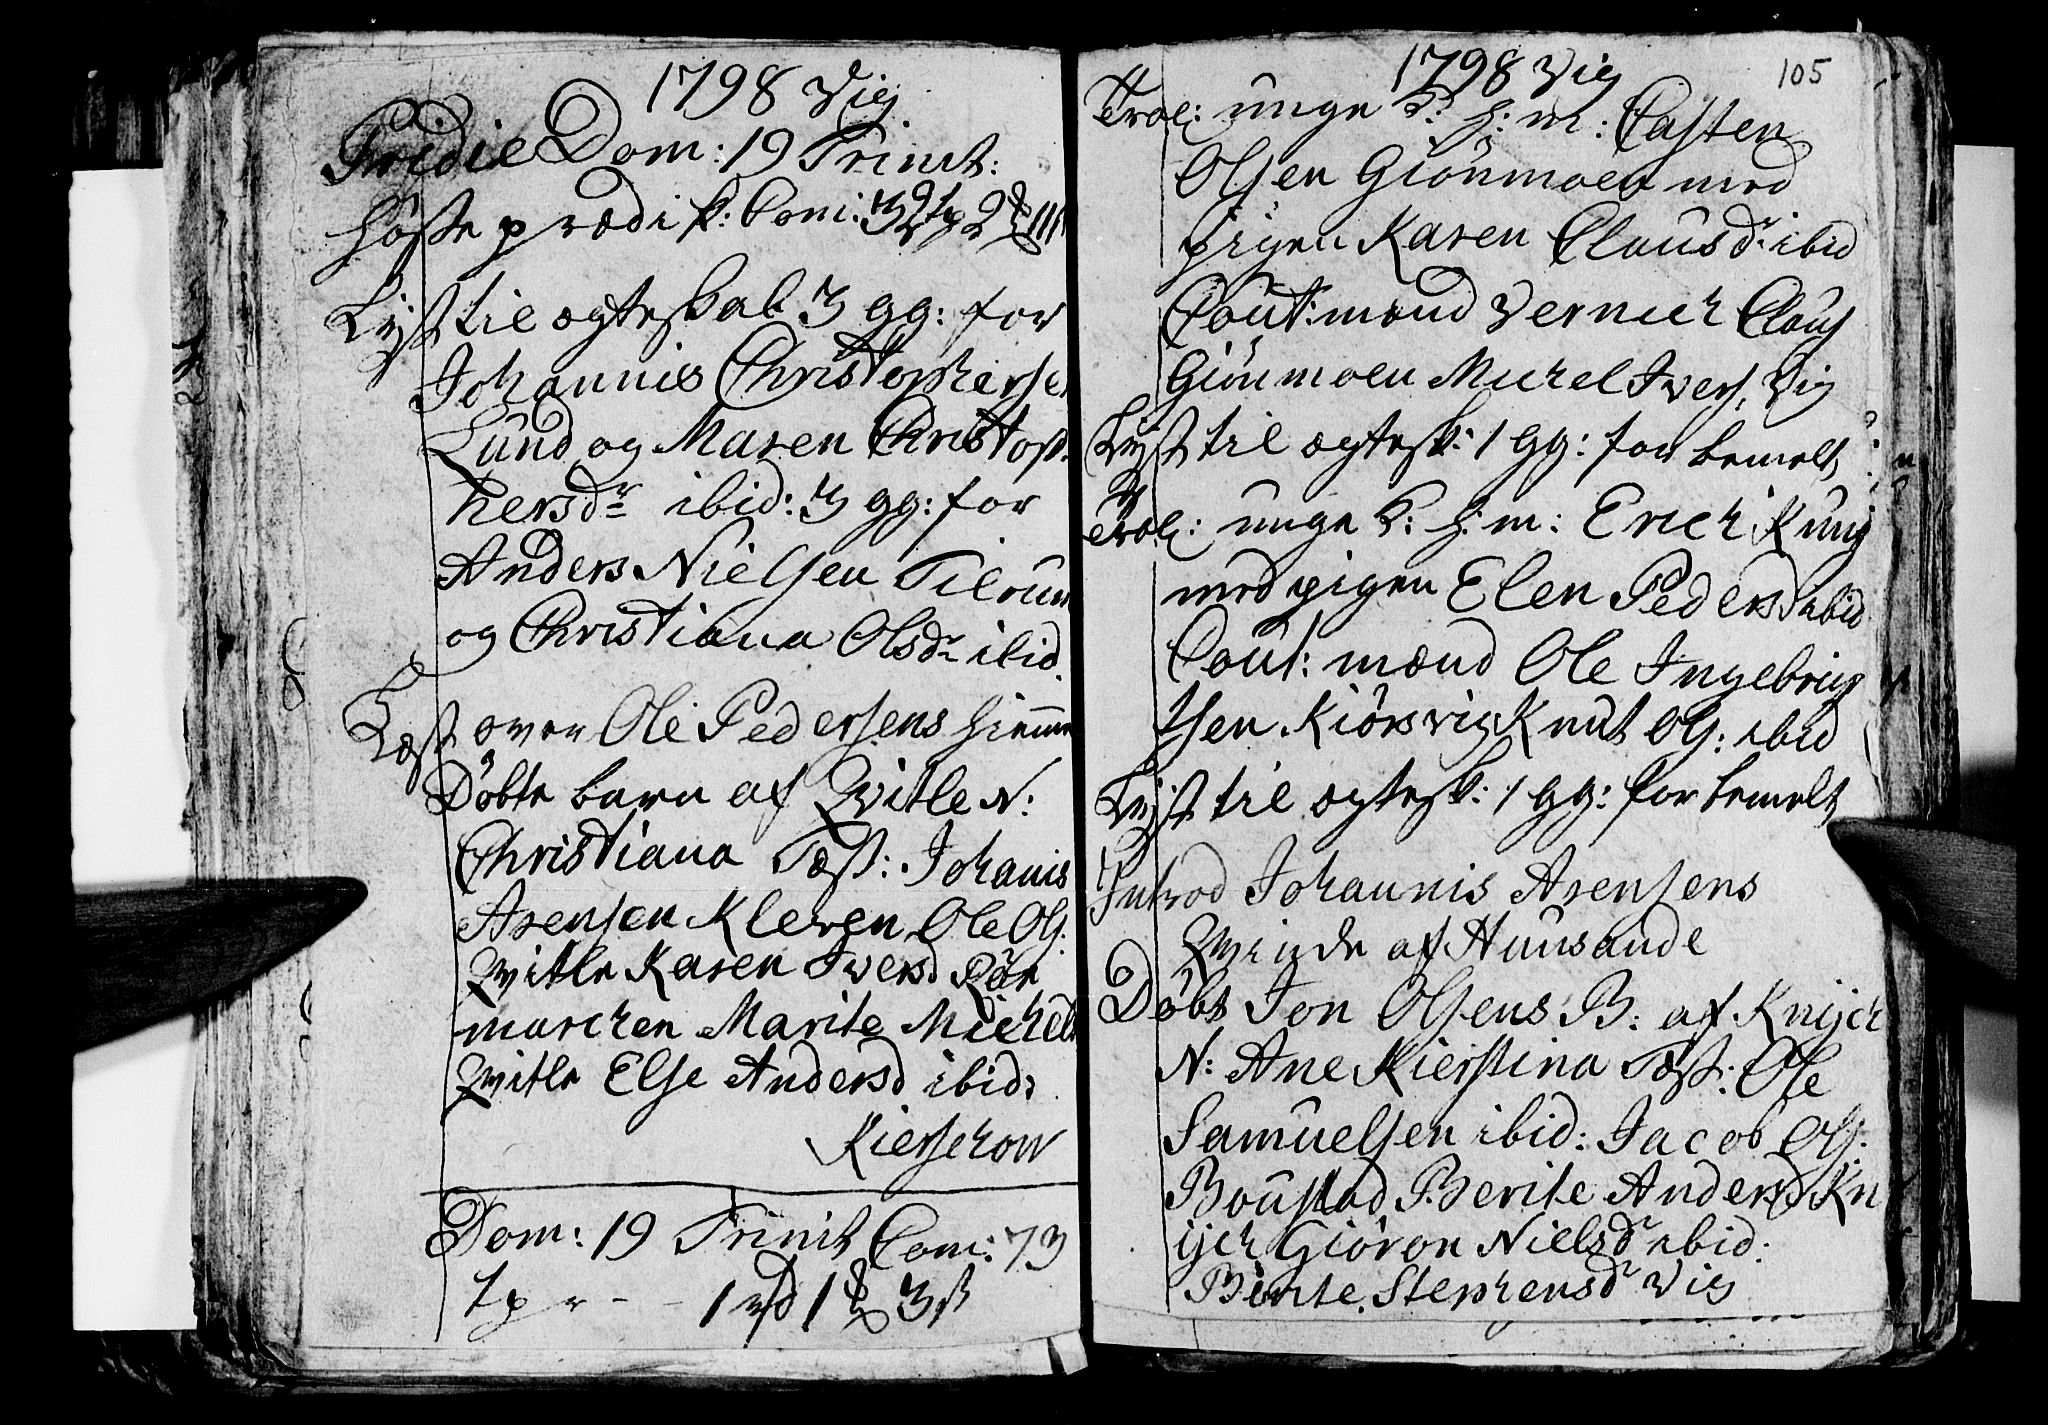 1798 Vig
Pridie Dom: 19 Trinit:
høste prædik: Com: 32 tp 2
Lyst til ægteskab 3 gg: for
Johannis Christophersen
Lund og Maren Christop
hersdr ibid: 3 gg: for
Anders Nielsen Tilrum
og Christiana Olsdr ibid.
Læst over Ole Pedersens hiemme
Døbte barn af Zvitle N:
Christiana Test: Johanis
Arensen Kleven Ole Ols.
Zvitle Karen Iversd Rør
marchen Marite Michels
Zvitle Else Andersd ibid:
Kierschow
Dom: 19 Trinit Com: 73
tp - - 1 rd 1 3 s
1798 Vig 105
Trol: unge k: h: m: Casten
Olsen Giönmoen med
pigen Karen Clausdr ibid
Caut: mænd Vernich Claus
Giönmoen Michel Ivers. Vig
Lyst til ægtesk: 1 gg: for bemelt
Trol: unge k: h: m: Erich
med pigen Elen Pedersd ibid
Caut: mænd Ole Ingebrig
tsen Kiörsvig Knut Ols: ibid
Lyst til ægtesk: 1 gg: for bemelt
Introd Johannis Arensens
Qvinde af Huusande
Døbt Jon Olsens B: af Knych
N: Ane Kierstina Test: Ole
Samuelsen ibid: Jacob Ols.
Boustad Berite Andersd Kn
ych Giøron Nielsdr ibid:
Bente Stephensdr Vig